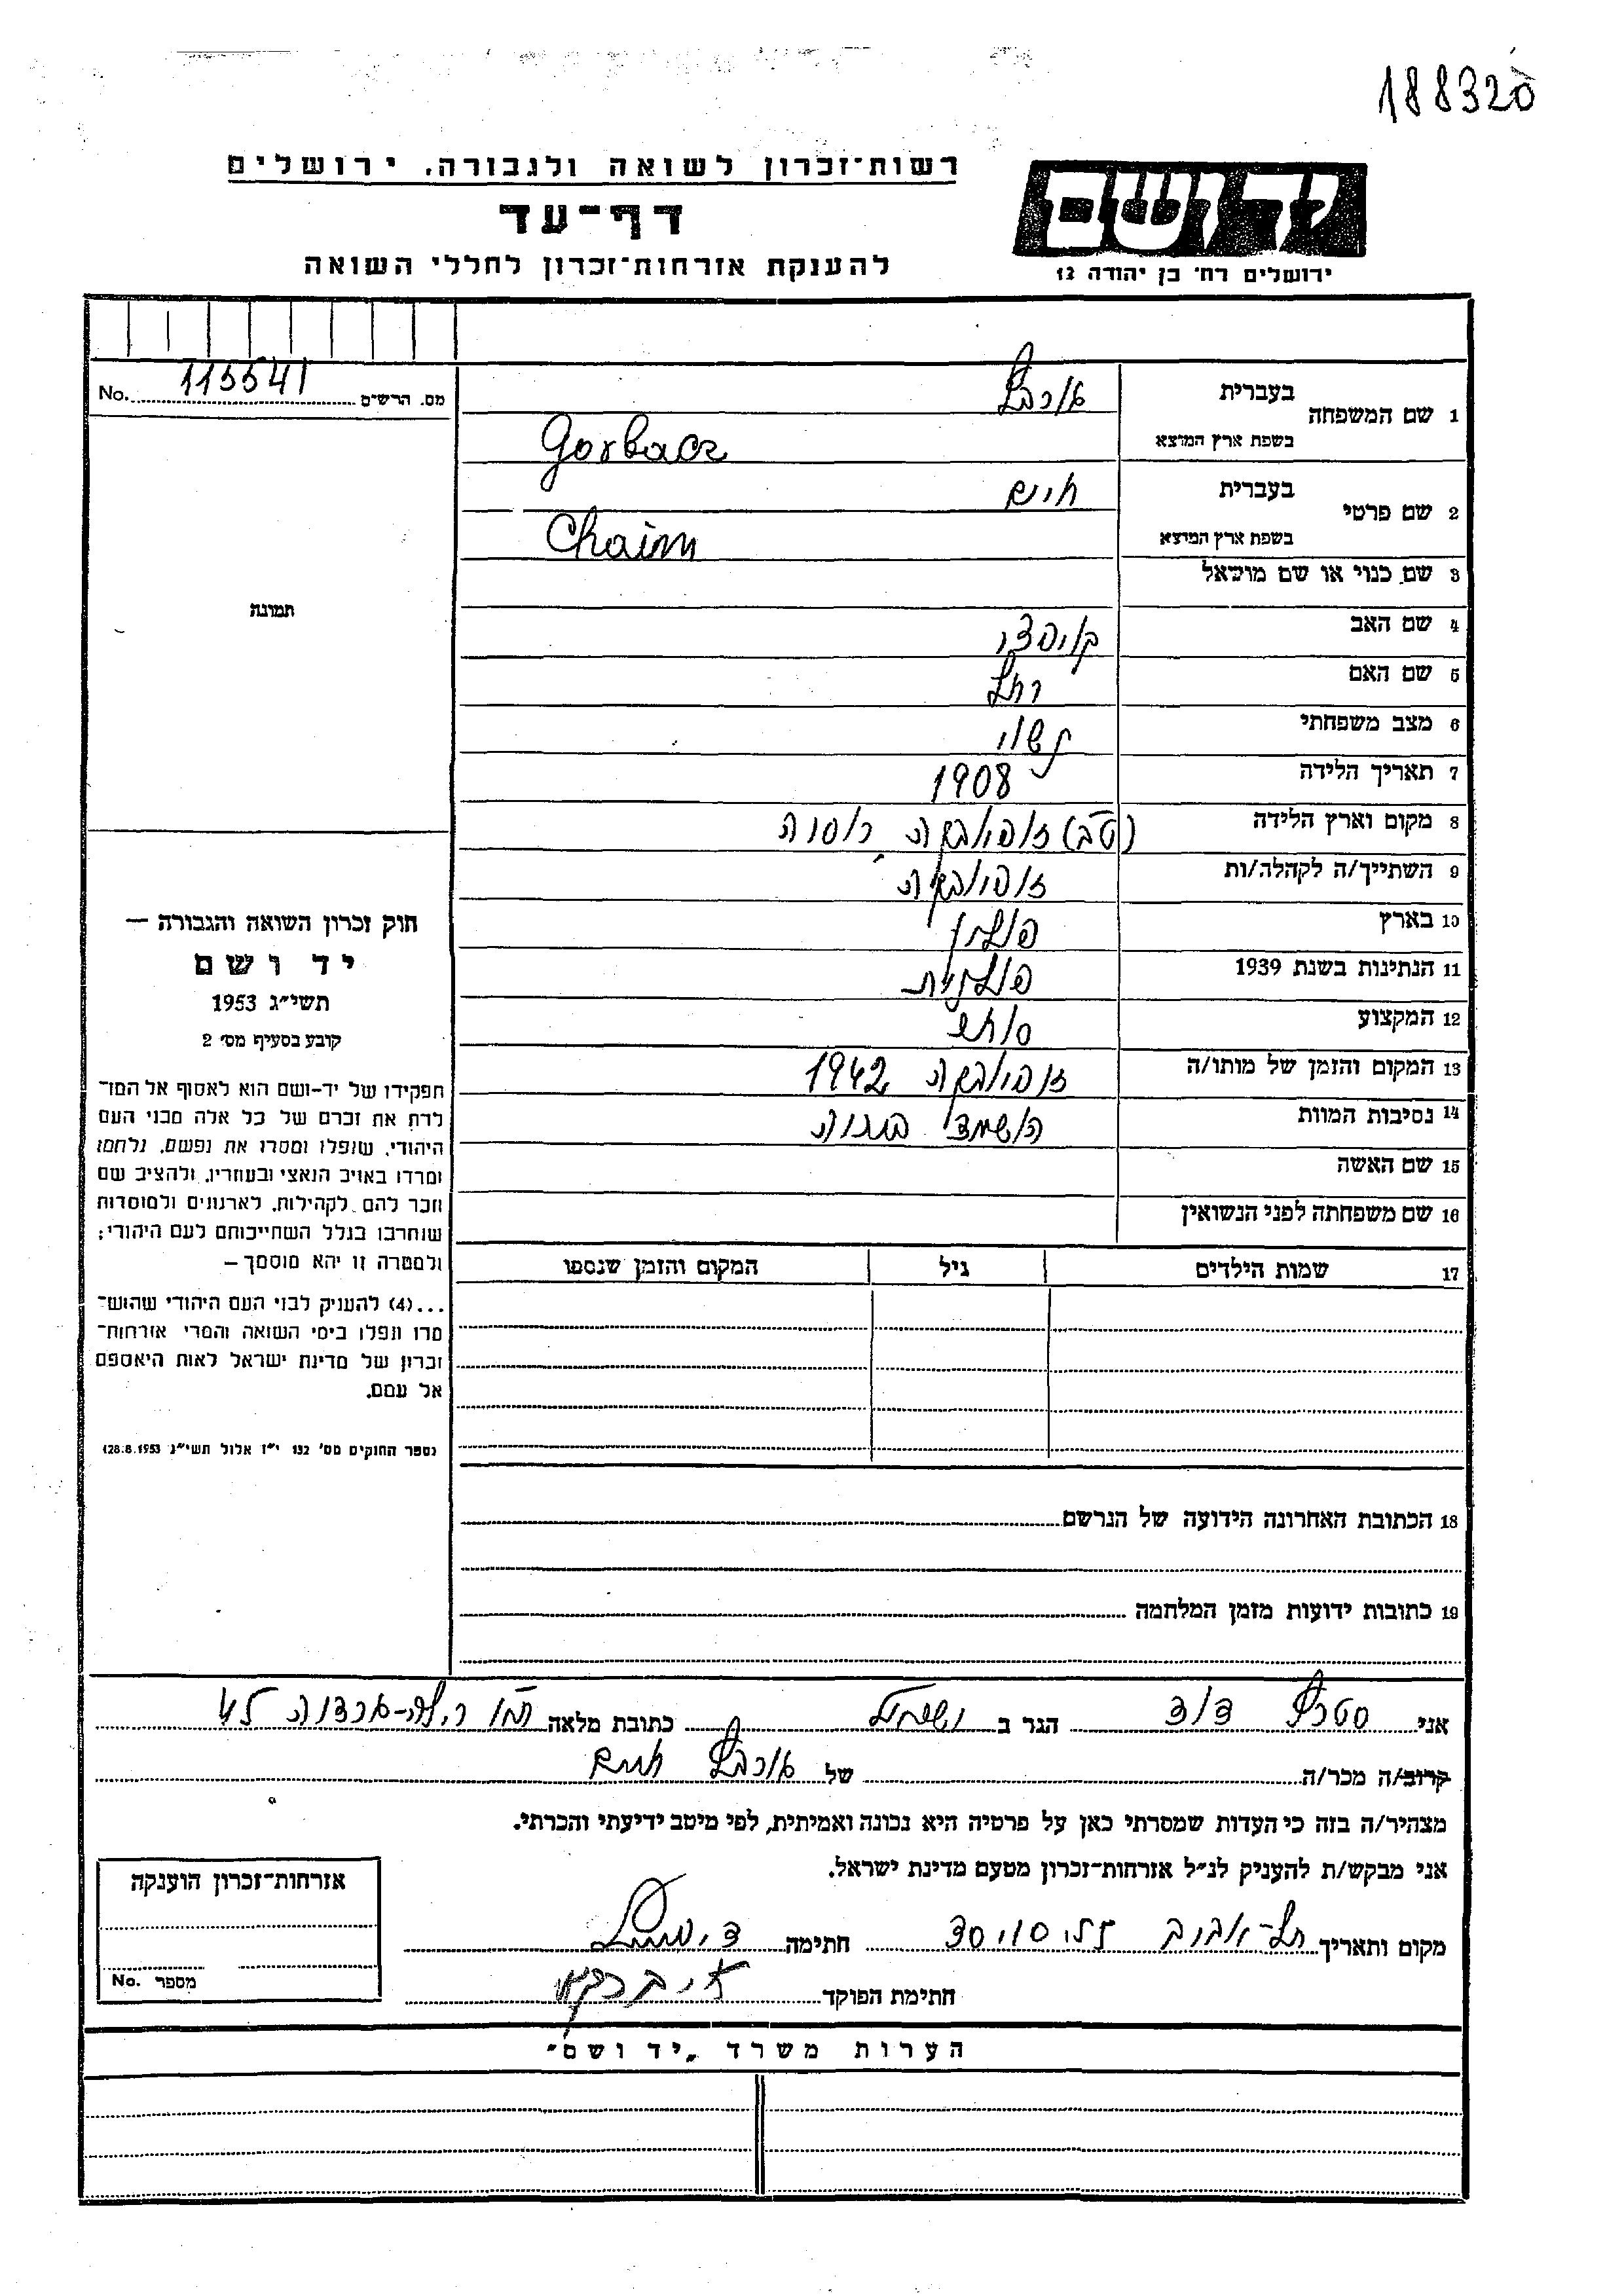 188320
רשות־זכרון לשואה ולגבורה, ירושלים
דף־עד
להענקת אזרחות־זכרון לחללי השואה
יד ושם
ירושלים רח׳ בן יהודה 12
מס. הרשים 115541 No.
תמונה
חוק זכרון השואה והגבורה —
יד ושם
תשי״ג 1953
קובע בסעיף מס׳ 2
תפקידו של יד-ושם הוא לאסוף אל המו־
לדת את זכרם של כל אלה מבני העם
היהודי, שנפלו ומסרו את נפשם, נלחמו
ומרדו באויב הנאצי ובעוזריו, ולהציב שם
וזכר להם, לקהילות, לארגונים ולמוסדות
שנחרבו בגלל השתייכותם לעם היהודי;
ולמטרה זו יהא מוסמך —
...(4) להעניק לבני העם היהודי שהוש־
מדו ונפלו בימי השואה והמרי אזרחות־
זכרון של מדינת ישראל לאות היאספם
אל עמם.
נספר החוקים מס׳ 132 י״ז אלול תשי״ג 28.8.1953)
1 שם המשפחה
בעברית
בשפת ארץ המוצא Gorbacz
2 שם פרטי
בעברית חיים
בשפת ארץ המוצא Chaim
3 שם כנוי או שם מושאל
4 שם האב
5 שם האם רחל
6 מצב משפחתי נשוי
7 תאריך הלידה 1908
8 מקום וארץ הלידה זופיובקה רוסיה
9 השתייך/ה לקהלה/ות זופיובקה
10 בארץ פולין
11 הנתינות בשנת 1939 פולנית
12 המקצוע סוחר
13 המקום והזמן של מותו/ה זופיובקה 1942
14 נסיבות המוות הושמד
15 שם האשה
16 שם משפחתה לפני הנשואין
17 שמות הילדים גיל המקום והזמן שנספו
18 הכתובת האחרונה הידועה של הנרשם
19 כתובות ידועות מזמן המלחמה
אני דוד הגר ב כתובת מלאה 45
קרוב/ה מכר/ה של חיים
מצהיר/ה בזה כי העדות שמסרתי כאן על פרטיה היא נכונה ואמיתית, לפי מיטב ידיעתי והכרתי.
אני מבקש/ת להעניק לנ״ל אזרחות־זכרון מטעם מדינת ישראל.
מקום ותאריך תל-אביב חתימה
חתימת הפוקד
אזרחות־זכרון הוענקה
מספר No.
הערות משרד „יד ושם״